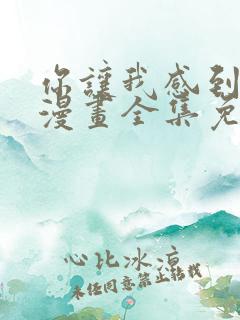 你讓我感到
漫畫全集免
心比冰涼
未经同意禁止转载